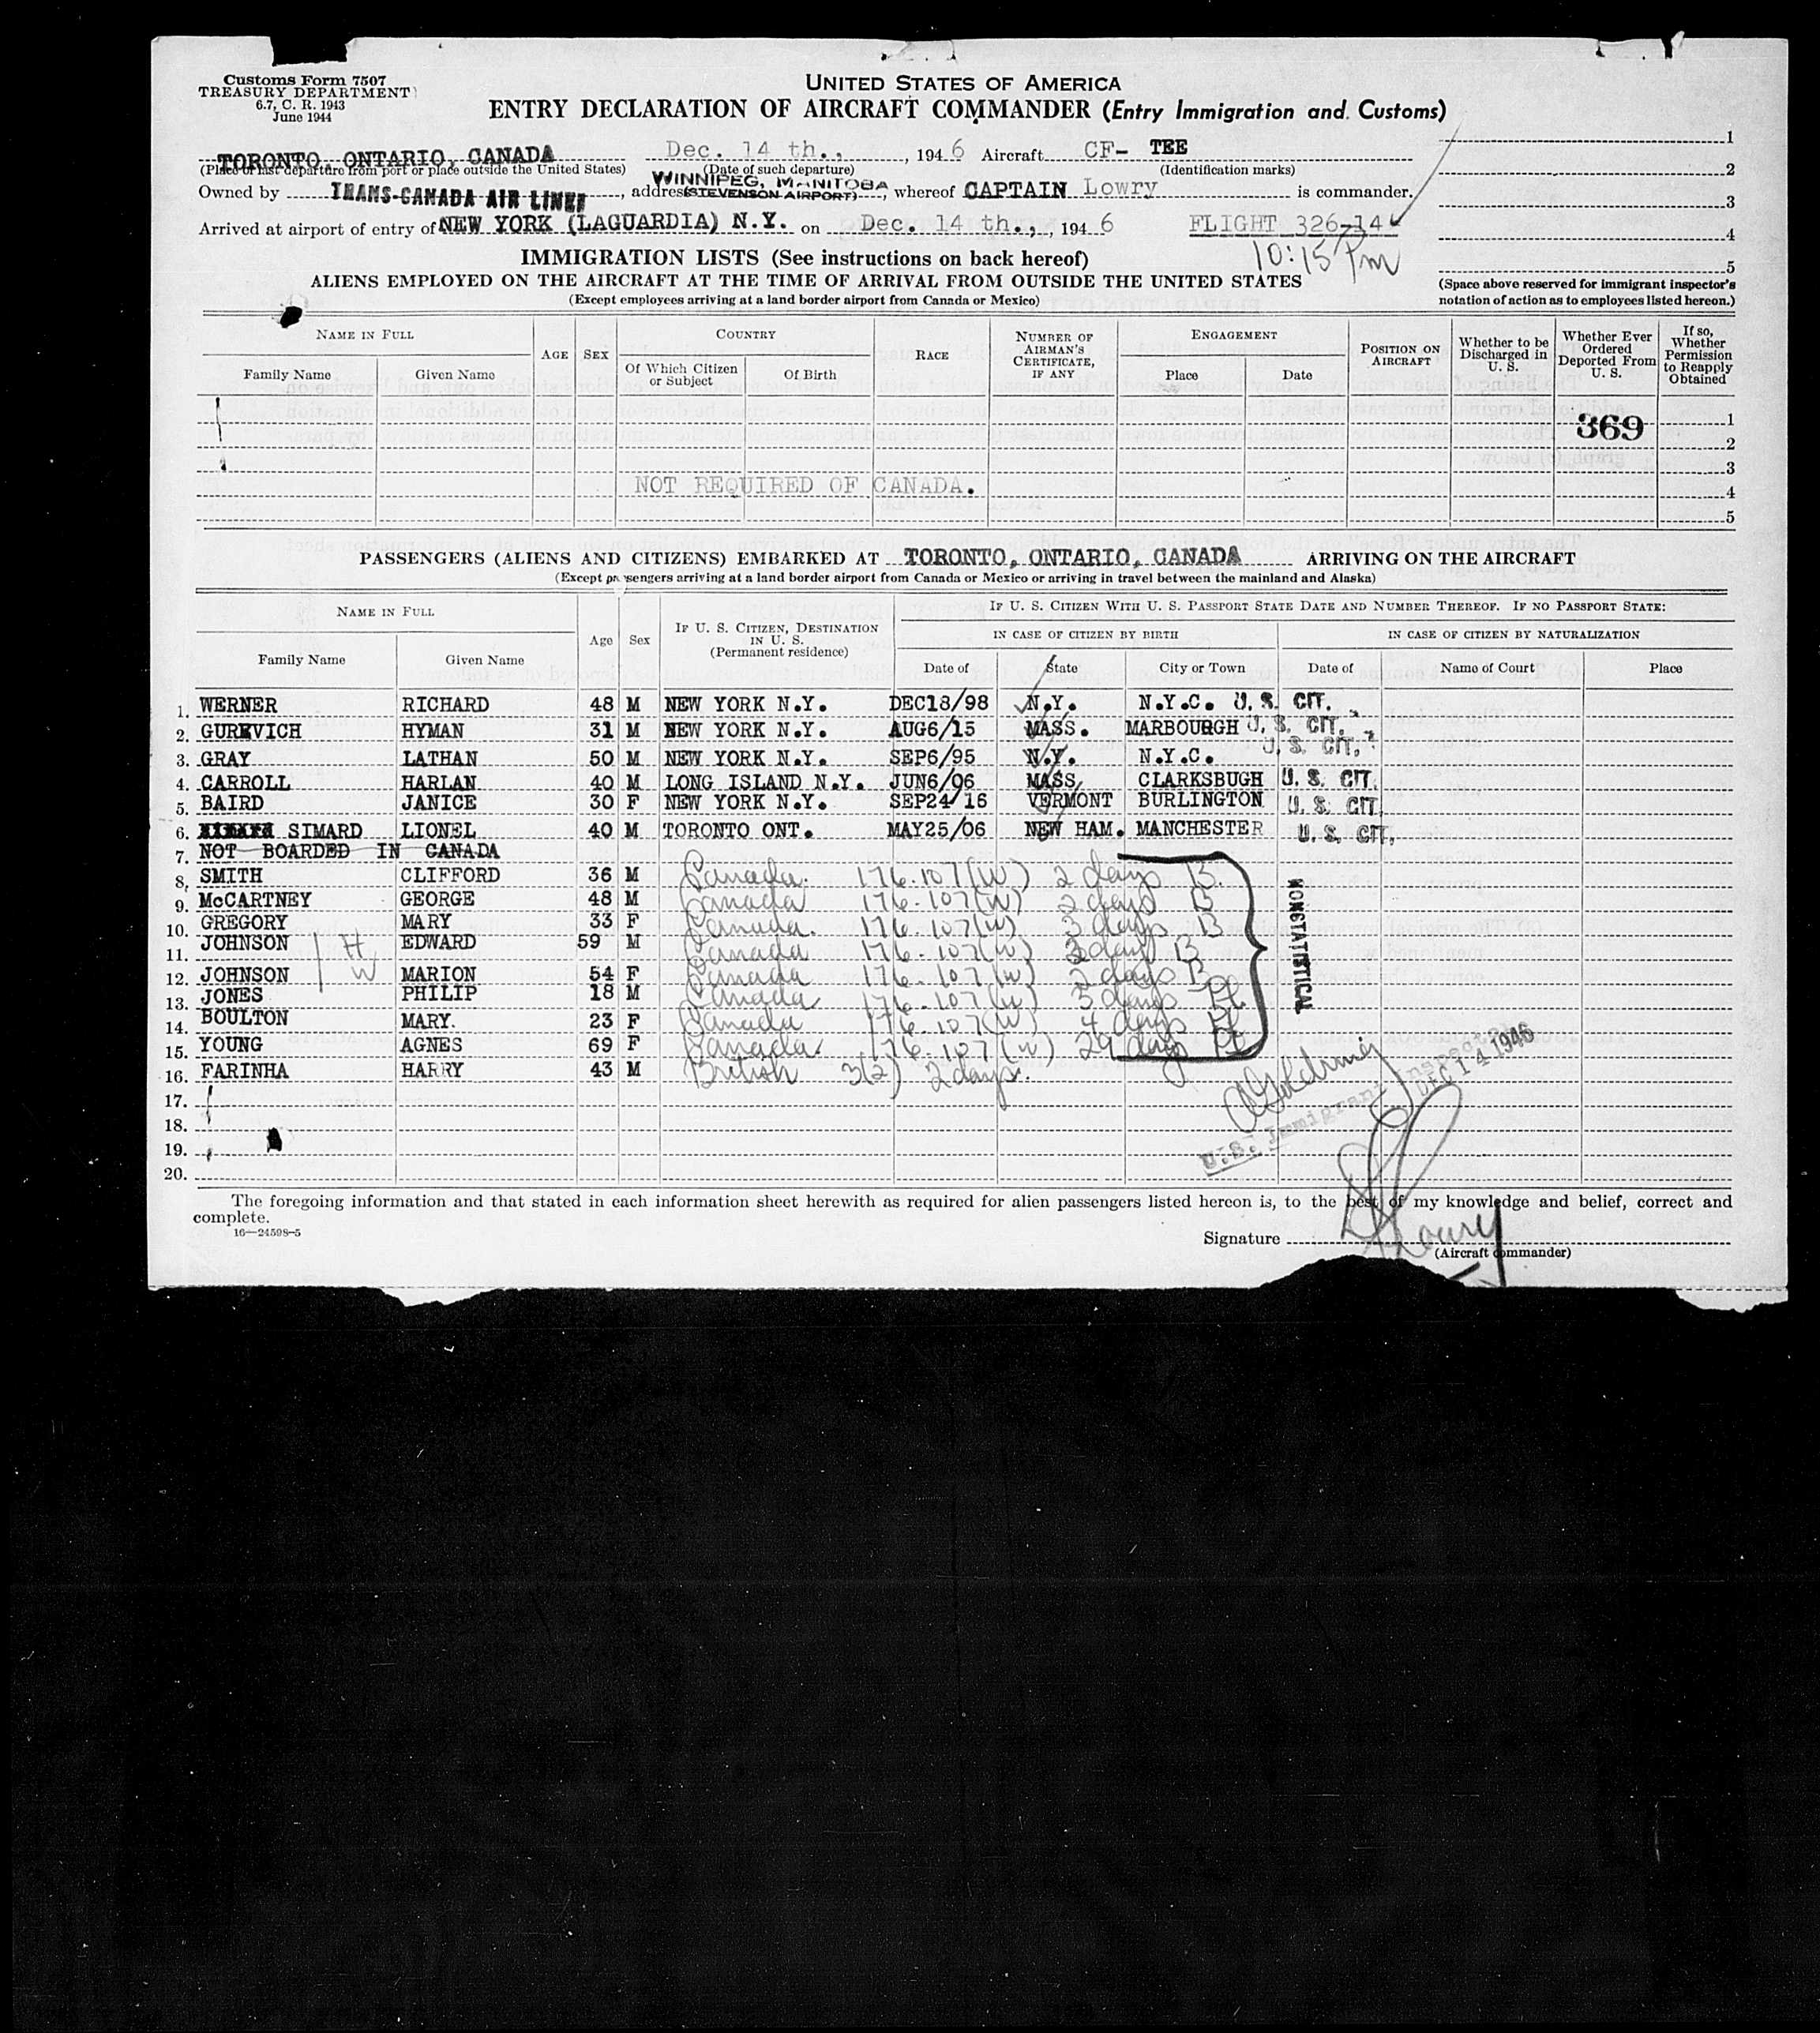 Customs Form 7507
TREASURY DEPARTMENT
6.7, C. R. 1943
June 1944
UNITED STATES OF AMERICA
ENTRY DECLARATION OF AIRCRAFT COMMANDER (Entry Immigration and Customs)
TORONTO, ONTARIO, CANADA Dec. 14 th., , 1946 Aircraft CF- TEE
(Place of last departure from port or place outside the United States) (Date of such departure) (Identification marks)
Owned by TRANS-CANADA AIR LINES, address WINNIPEG, MANITOBA (STEVENSON AIRPORT), whereof CAPTAIN Lowry is commander.
Arrived at airport of entry of NEW YORK (LAGUARDIA) N.Y. on Dec. 14 th., , 1946 FLIGHT 326-14
10:15 Pm
1
2
3
4
5
(Space above reserved for immigrant inspector's notation of action as to employees listed hereon.)
IMMIGRATION LISTS (See instructions on back hereof)
ALIENS EMPLOYED ON THE AIRCRAFT AT THE TIME OF ARRIVAL FROM OUTSIDE THE UNITED STATES
(Except employees arriving at a land border airport from Canada or Mexico)
NAME IN FULL AGE SEX COUNTRY RACE NUMBER OF AIRMAN'S CERTIFICATE, IF ANY ENGAGEMENT POSITION ON AIRCRAFT Whether to be Discharged in U. S. Whether Ever Ordered Deported From U. S. If so, Whether Permission to Reapply Obtained
Family Name Given Name Of Which Citizen or Subject Of Birth Place Date
369 1
2
3
NOT REQUIRED OF CANADA. 4
5
PASSENGERS (ALIENS AND CITIZENS) EMBARKED AT TORONTO, ONTARIO, CANADA ARRIVING ON THE AIRCRAFT
(Except passengers arriving at a land border airport from Canada or Mexico or arriving in travel between the mainland and Alaska)
NAME IN FULL Age Sex IF U. S. CITIZEN, DESTINATION IN U. S. (Permanent residence) IF U. S. CITIZEN WITH U. S. PASSPORT STATE DATE AND NUMBER THEREOF. IF NO PASSPORT STATE:
IN CASE OF CITIZEN BY BIRTH IN CASE OF CITIZEN BY NATURALIZATION
Family Name Given Name Date of State City or Town Date of Name of Court Place
1. WERNER RICHARD 48 M NEW YORK N.Y. DEC18/98 N.Y. N.Y.C. U. S. CIT.
2. GUREVICH HYMAN 31 M NEW YORK N.Y. AUG6/15 MASS. MARBOURGH U. S. CIT.
3. GRAY LATHAN 50 M NEW YORK N.Y. SEP6/95 N.Y. N.Y.C. U. S. CIT.
4. CARROLL HARLAN 40 M LONG ISLAND N.Y. JUN6/06 MASS CLARKSBUGH U. S. CIT.
5. BAIRD JANICE 30 F NEW YORK N.Y. SEP24/16 VERMONT BURLINGTON U. S. CIT.
6. SIMARD LIONEL 40 M TORONTO ONT. MAY25/06 NEW HAM. MANCHESTER U. S. CIT.
7. NOT BOARDED IN CANADA
8. SMITH CLIFFORD 36 M Canada. 176.107(W) 2 days B.
9. McCARTNEY GEORGE 48 M Canada 176.107(W) 2 days B
10. GREGORY MARY 33 F Canada. 176.107(W) 3 days B
11. JOHNSON H EDWARD 59 M Canada 176.107(W) 2 days B
12. JOHNSON W MARION 54 F Canada 176.107(W) 2 days B
13. JONES PHILIP 18 M Canada 176.107(W) 3 days Pl.
14. BOULTON MARY. 23 F Canada 176.107(W) 4 days Pl
15. YOUNG AGNES 69 F Canada. 176.107(W) 29 days Pl
16. FARINHA HARRY 43 M British 3(2) 2 days.
NONSTATISTICAL
17.
18.
19.
20.
U.S. Immigrant Inspector
DEC 14 1946
The foregoing information and that stated in each information sheet herewith as required for alien passengers listed hereon is, to the best of my knowledge and belief, correct and
complete.
16—24598-5
Signature Lowry
(Aircraft commander)